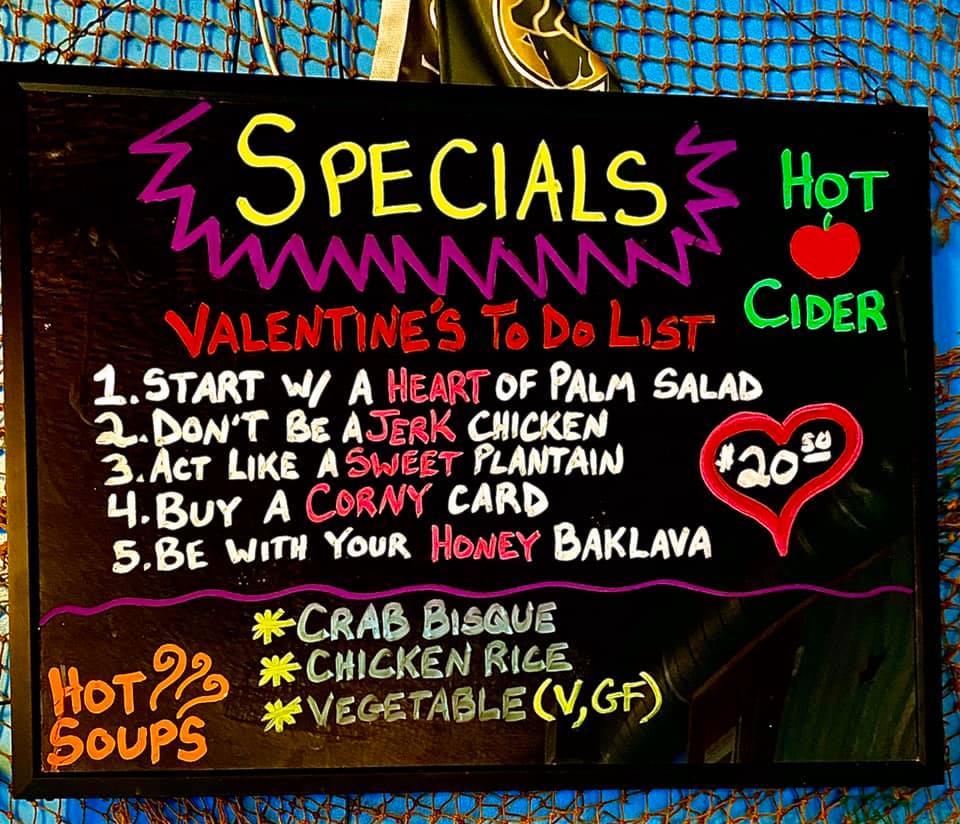 SPECIALS
HOT
CIDER
VALENTINE'S TO DO LIST
1. START W/ A HEART OF PALM SALAD
2. DON'T BE A JERK CHICKEN
3. ACT LIKE A SWEET PLANTAIN
4. BUY A CORNY CARD
5. BE WITH YOUR HONEY BAKLAVA
$20
HOT
SOUPS
* CRAB BISQUE
* CHICKEN RICE
* VEGETABLE (V, GF)